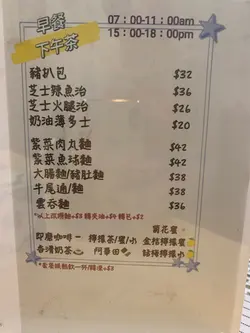 早餐
07：00-11：00am
下午茶
15：00-18：00pm
豬扒包 $32
芝士辣魚治 $36
芝士火腿治 $26
奶油薄多士 $20
紫菜肉丸麵 $42
紫菜魚球麵 $42
大腸麵/豬肚麵 $38
牛尾通/麵 $38
雲吞麵 $36
即磨咖啡 檸檬茶/蜜/小 菊花蜜
香滑奶茶 阿華田 金桔檸檬蜜